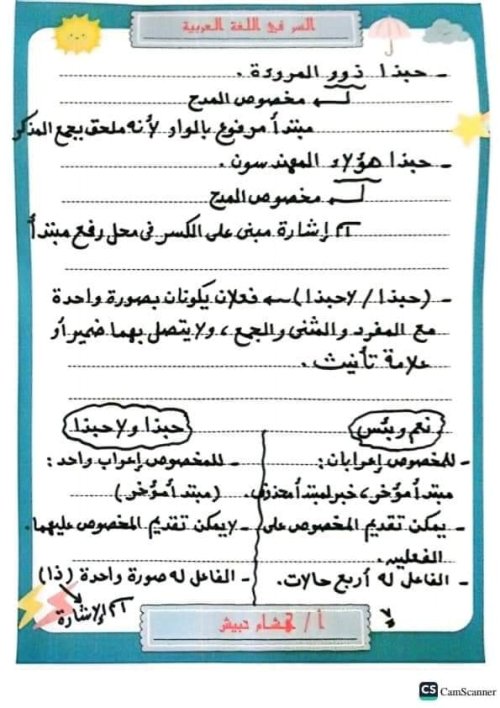 السر في اللغة العربية
- حبذا ذوو المروءة.
مخصوص المدح
مبتدأ مرفوع بالواو لأنه ملحق بجمع المذكر
- حبذا هؤلاء المهندسون.
مخصوص المدح
اسم إشارة مبنى على الكسر فى محل رفع مبتدأ
- (حبذا / لاحبذا) ← فعلان يكونان بصورة واحدة
مع المفرد والمثنى والجمع، ولا يتصل بهما ضمير أو
علامة تأنيث.
نعم وبئس
- للمخصوص إعرابان:
مبتدأ مؤخر، خبر لمبتدأ محذوف.
- يمكن تقديم المخصوص على
الفعلين.
- الفاعل له أربع حالات.
حبذا ولا حبذا
- للمخصوص إعراب واحد:
(مبتدأ مؤخر)
- لا يمكن تقديم المخصوص عليهما.
- الفاعل له صورة واحدة (ذا)
اسم إشارة
أ / هشام حبيش
CS CamScanner